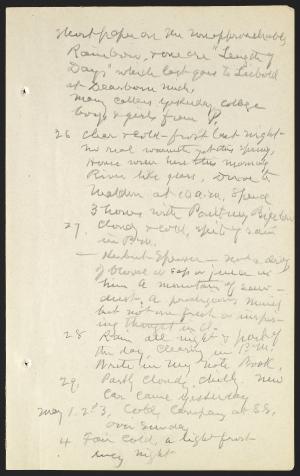 Short paper on the unapproachable
Rainbow, & one on "Length of
Days" which last goes to Liebold
at Dearborn Mich.
Many callers yesterday college
boys & girls from P.
26 Clear & cold - frost last night -
no real warmth yet this spring,
House wren here this morning
River like glass, Drive to
Malden at 10 a.m. Spend
3 hours with Poultney Bigelow
27. Cloudy & cold, spits of rain
in P.M.
- Herbert Spencer - not a drop
of blood or sap or juice in
him A mountain of saw-
dust, A prodigious mind
but not one fresh or inspir-
ing thought in it.
28 Rain all night & part of
the day, clearing in P.M.
Write in my Note Book.
29 Partly cloudy, chilly. New
Car came yesterday
May 1. 2d 3, Cold, Company at S.S.
over Sunday
4 Fair Cold, a light frost
every night